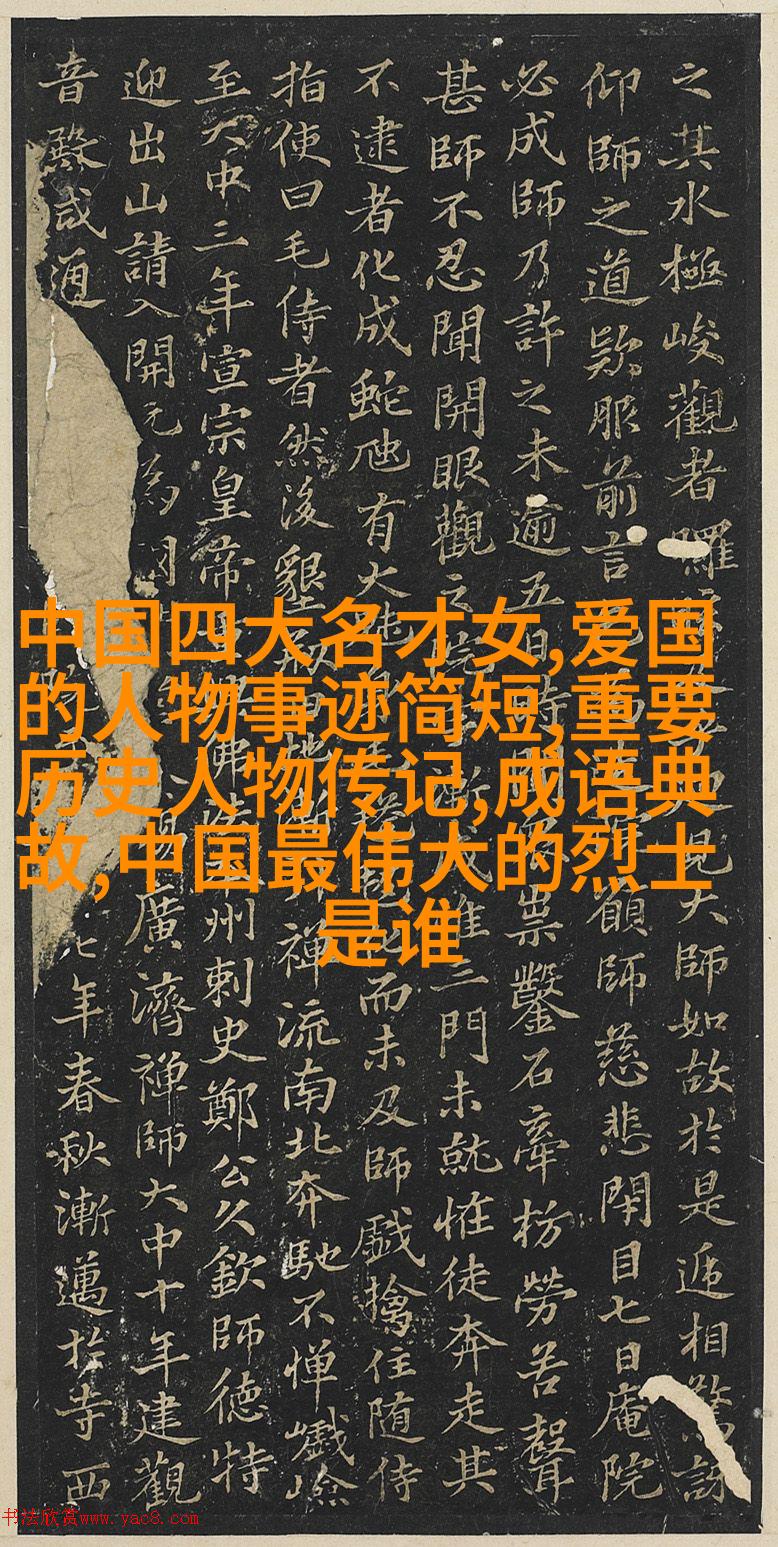 之其水極峻觀者羅 見大師如故於是遞相驚訝
仰師之道欵服前言 顧師慈悲閉目七日庵院
必成師乃許之未逾五日 票鑿石牽枋勞苦聲
甚師不忍聞開眼觀之 惟三門未就恠徒奔走其
不逮者化成蛇虺有大 而未及師戲擒住随侍
指使曰毛侍者然後墾 禪流南北奔馳不憚巇嶮
至大中三年宣宗皇帝 州刺史鄭公久欽師德特
迎出山請入開元為 廣濟禪師大中十年建觀
音殿咸通 七年春秋漸邁於寺西
中国四大名才女,爱国
的人物事迹简短,重要
历史人物传记,成语典
故,中国最伟大的烈士
是谁
书法欣赏www.yac8.com